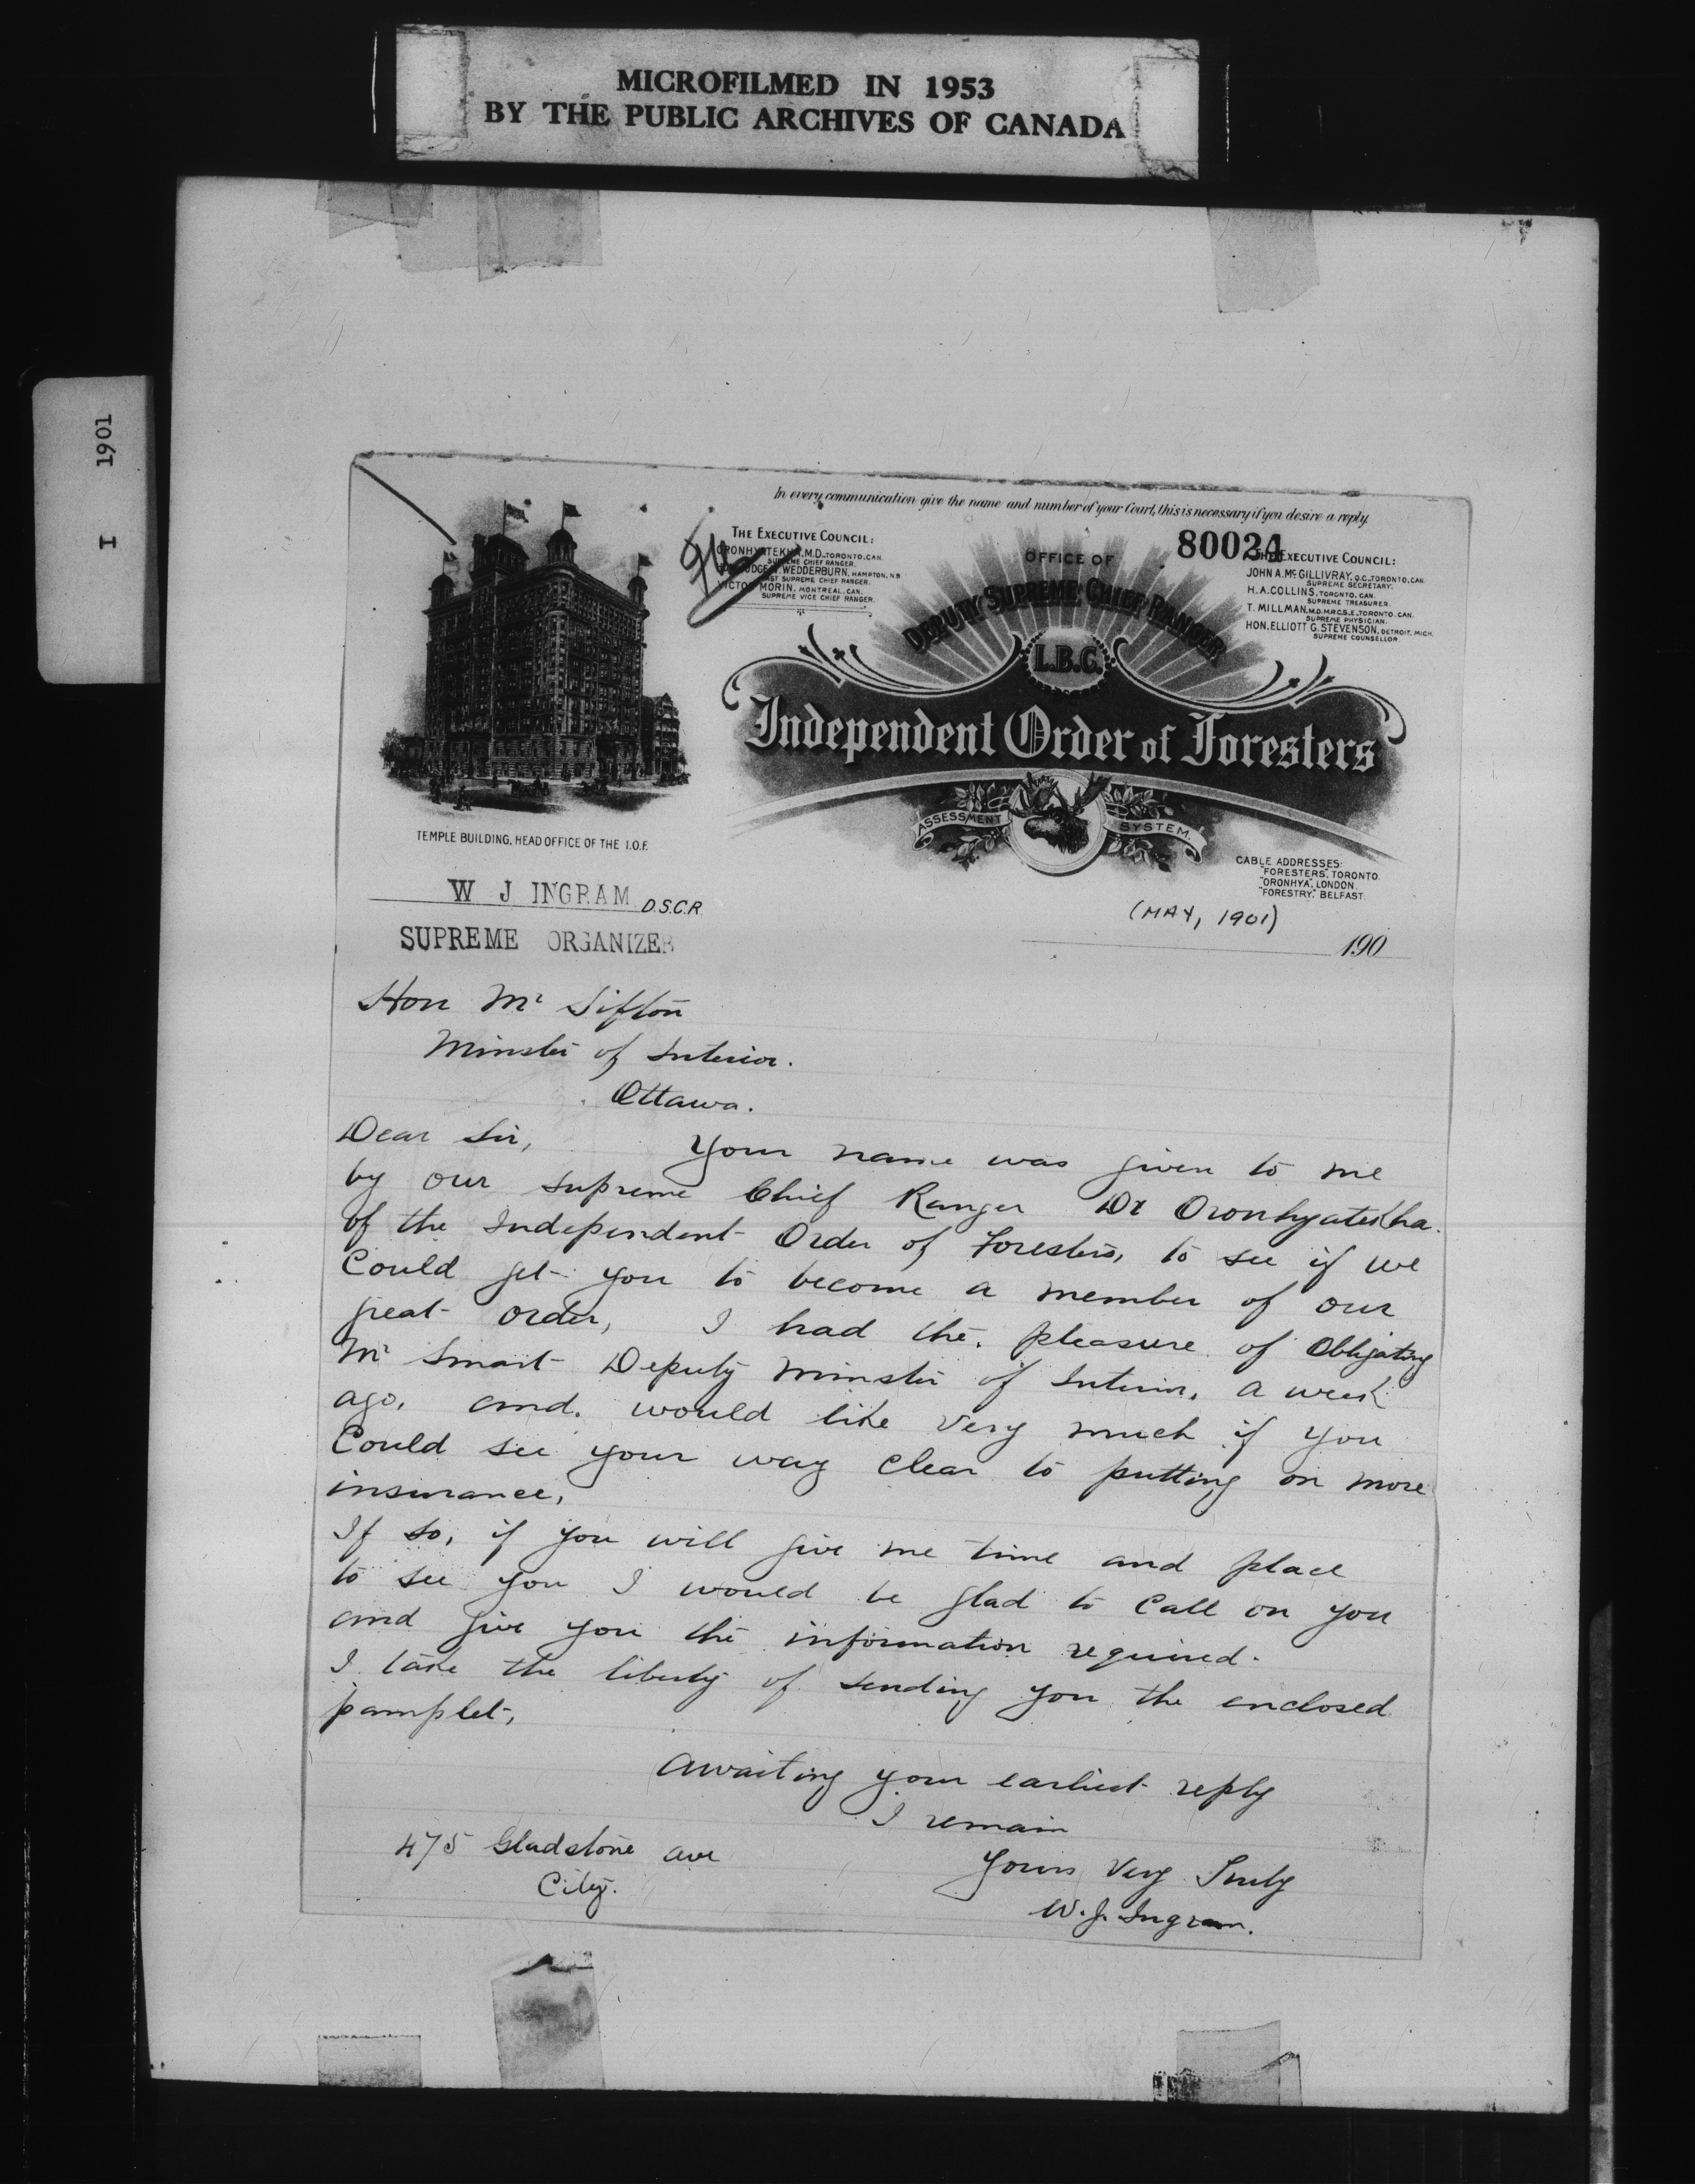 MICROFILMED IN 1953
BY THE PUBLIC ARCHIVES OF CANADA
I 1901
In every communication give the name and number of your Court, this is necessary if you desire a reply.
80024
THE EXECUTIVE COUNCIL:
ORONHYATEKHA, M.D., TORONTO, CAN.
SUPREME CHIEF RANGER.
JUDGE W. WEDDERBURN, HAMPTON, N.B.
PAST SUPREME CHIEF RANGER.
VICTOR MORIN, MONTREAL, CAN.
SUPREME VICE CHIEF RANGER.
OFFICE OF
DEPUTY SUPREME CHIEF RANGER
L.B.C.
THE EXECUTIVE COUNCIL:
JOHN A. McGILLIVRAY, Q.C., TORONTO, CAN.
SUPREME SECRETARY.
H.A. COLLINS, TORONTO, CAN.
SUPREME TREASURER.
T. MILLMAN, M.D. M.R.C.S.E., TORONTO, CAN.
SUPREME PHYSICIAN.
HON. ELLIOTT G. STEVENSON, DETROIT, MICH.
SUPREME COUNSELLOR
Independent Order of Foresters
ASSESSMENT SYSTEM.
TEMPLE BUILDING, HEAD OFFICE OF THE I.O.F.
CABLE ADDRESSES:
"FORESTERS", TORONTO.
"ORONHYA", LONDON.
"FORESTRY." BELFAST.
W J INGRAM D.S.C.R.
SUPREME ORGANIZER
(MAY, 1901)
190
Hon Mr Sifton
Minster of Interior.
Ottawa.
Dear Sir, Your name was given to me
by our Supreme Chief Ranger Dr Oronhyatekha.
of the Independent Order of Foresters, to see if we
Could get you to become a member of our
great order, I had the pleasure of Obligating
Mr Smart Deputy Minster of Interior, a week
ago, and would like very much if you
Could see your way clear to putting on more
insurance,
If so, if you will give me time and place
to see you I would be glad to Call on you
and give you the information required.
I take the liberty of sending you the enclosed
pamplet,
Awaiting your earliest reply
I remain
475 Gladstone ave
City.
Yours Very Truly
W. J. Ingram.